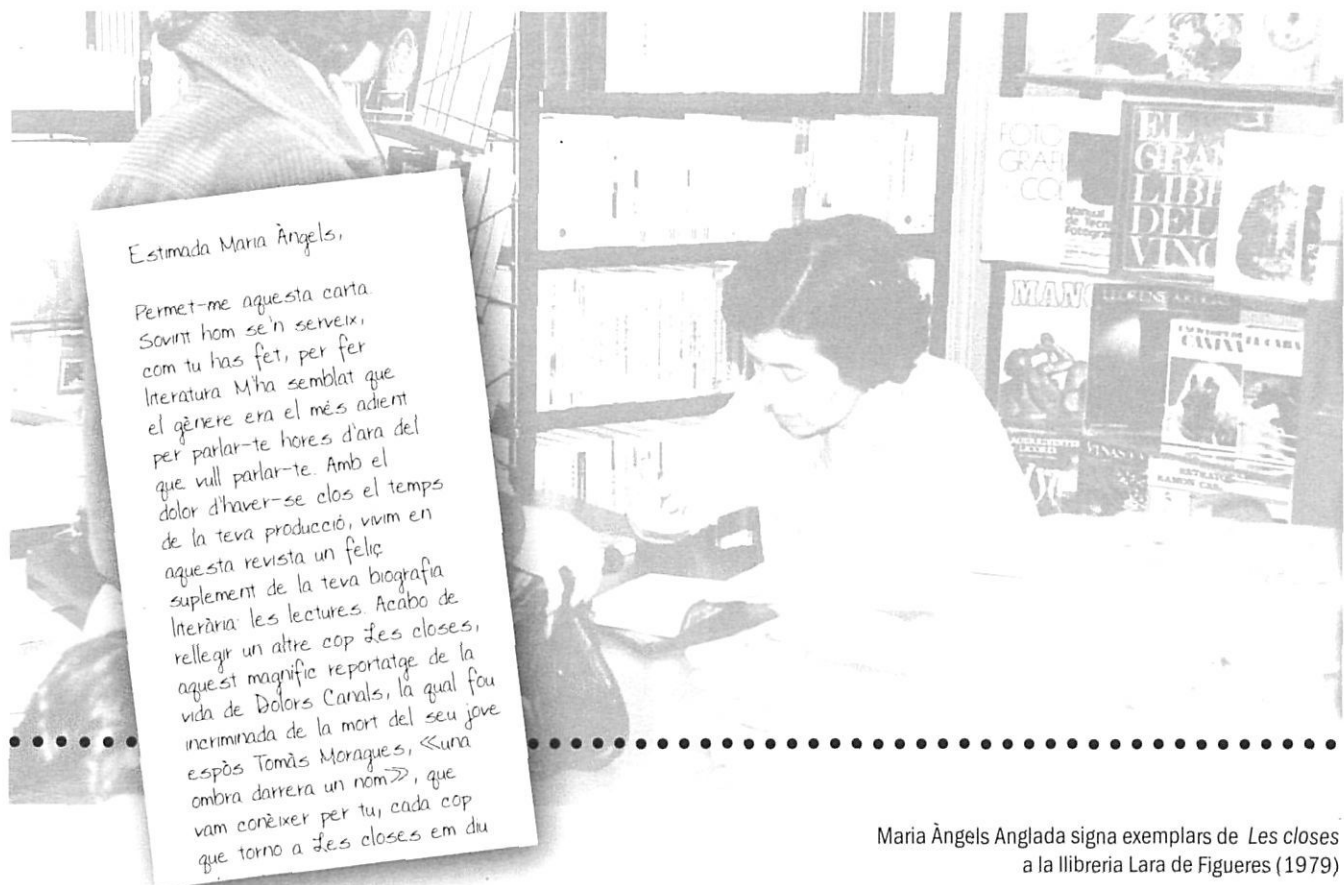 Estimada Maria Àngels,
Permet-me aquesta carta.
Sovint hom se'n serveix,
com tu has fet, per fer
literatura M'ha semblat que
el gènere era el més adient
per parlar-te hores d'ara del
que vull parlar-te. Amb el
dolor d'haver-se clos el temps
de la teva producció, vivim en
aquesta revista un feliç
suplement de la teva biografia
literària: les lectures. Acabo de
rellegir un altre cop Les closes,
aquest magnífic reportatge de la
vida de Dolors Canals, la qual fou
incriminada de la mort del seu jove
espòs Tomàs Moragues, «una
ombra darrera un nom», que
vam conèixer per tu, cada cop
que torno a Les closes em diu
FOTO
GRAF
COL
Manual
de Tecn
Fotogra
EL
GRAN
LIBR
DEL
VINO
MAN
LICORES
VINAS
RETRATO
RAMON CAS
Maria Àngels Anglada signa exemplars de Les closes
a la llibreria Lara de Figueres (1979)